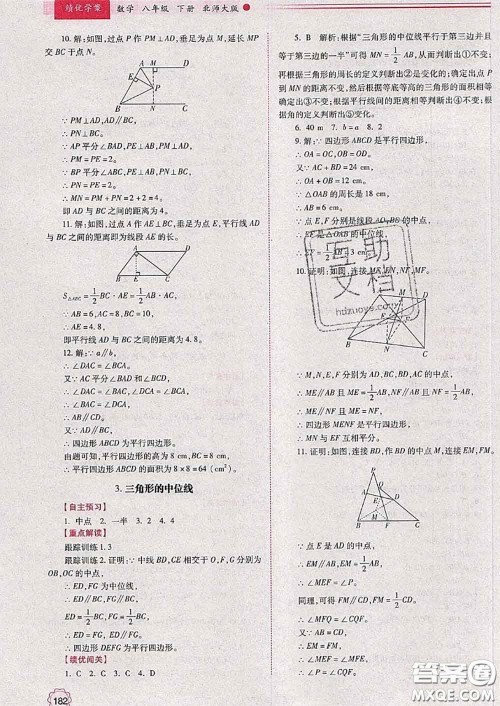 绩优学案 数学 八年级 下册 北师大版
10. 解:如图,过点 P 作 PM⊥AD,垂足为点 M,延长 MP
交 BC 于点 N.
A M D
P
B N C
∵ PM⊥AD,AD∥BC,
∴ PN⊥BC.
∵ AP 平分∠BAD,PM⊥AD,PE⊥AB,
∴ PM=PE=2.
∵ BP 平分∠ABC,PN⊥BC,PE⊥AB,
∴ PN=PE=2.
∴ MN=PM+PN=2+2=4.
即 AD 与 BC 之间的距离为 4.
11. 解:如图,过点 A 作 AE⊥BC,垂足为点 E,平行线 AD
与 BC 之间的距离即为线段 AE 的长.
A D
B E C
S△ABC=1/2 BC·AE=1/2 AB·AC,
∵ AB=6,AC=8,BC=10,
∴ AE=4.8,
即平行线 AD 与 BC 之间的距离为 4.8.
12. 解:∵ a∥b,
∴ ∠DAC=∠BCA.
又∵ AC 平分∠BAD 和∠BCD,
∴ ∠DAC=∠BAC=∠BCA=∠DCA.
∴ AB∥CD.
又∵ AD∥BC,
∴ 四边形 ABCD 为平行四边形.
由题可知,平行四边形的高为 8 cm,BC=8 cm,
∴ 平行四边形 ABCD 的面积为 8×8=64(cm²).
3. 三角形的中位线
【自主预习】
1. 中点 2. 一半 3. 2 4. 4
【重点解读】
跟踪训练 1. 3
跟踪训练 2. 证明:∵ 中线 BD,CE 相交于点 O,F,G 分别为
OB,OC 的中点,
∴ ED,FG 为中位线.
∴ ED∥BC,FG∥BC,
ED=1/2 BC,FG=1/2 BC.
∴ ED=FG,ED∥FG.
∴ 四边形 DEFG 为平行四边形.
【绩优闯关】
1. C 2. C 3. C 4. D
182
5. B 解析:根据“三角形的中位线平行于第三边并且
等于第三边的一半”可得 MN=1/2 AB,从而判断出①不变;
再根据三角形的周长的定义判断出②是变化的;确定出点 P
到 MN 的距离不变,然后根据等底等高的三角形的面积相等
确定出③不变;根据平行线间的距离相等判断出④不变;根
据角的变化判断出⑤变化.
6. 40 m 7. b=a 8. 2
9. 解:∵ 四边形 ABCD 是平行四边形,
∴ OA=OC,OB=OD.
又∵ AC+BD=24 cm,
∴ OA+OB=12 cm.
∵ △OAB 的周长是 18 cm,
∴ AB=6 cm.
∵ 点 E,F 分别是线段 AO,BO 的中点,
∴ EF 是△OAB 的中位线.
∴ EF=1/2 AB=3 cm.
互助文档
hdzuoye.com
10. 证明:如图,连接 ME,EN,NF,MF.
A M D
E F
B N C
∵ M,N,E,F 分别为 AD,BC,BD,AC 的中点,
∴ ME∥AB 且 ME=1/2 AB,NF∥AB 且 NF=1/2 AB.
∴ ME∥NF 且 ME=NF.
∴ 四边形 MENF 是平行四边形.
11. 证明:如图,连接 BD,取 BD 的中点 M,连接 EM,FM.
P
Q
A E D
M
B F C
∵ 点 E 是 AD 的中点,
∴ EM∥AB,且 EM=1/2 AB,
∴ ∠MEF=∠P.
同理,可得 FM=1/2 CD,FM∥CD.
∴ ∠MFE=∠CQF.
又∵ AB=CD,
∴ EM=FM.
∴ ∠MEF=∠MFE.
∴ ∠P=∠CQF.
答案圈
MXQE.COM